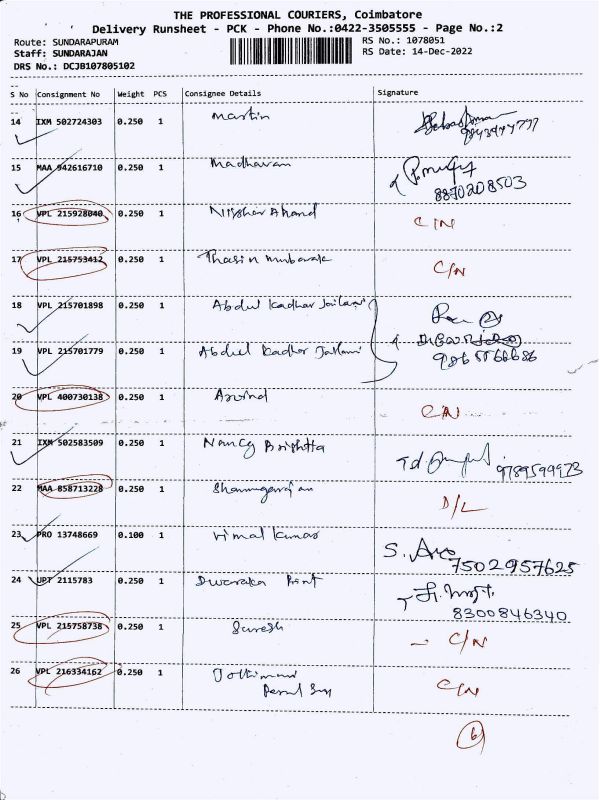 THE PROFESSIONAL COURIERS, Coimbatore
Delivery Runsheet - PCK - Phone No.:0422-3505555 - Page No.:2
Route: SUNDARAPURAM RS No.: 1078051
Staff: SUNDARAJAN RS Date: 14-Dec-2022
DRS No.: DCJB107805102
S No Consignment No Weight PCS Consignee Details Signature
14 IXM 502724303 0.250 1 Martin
15 MAA 942616710 0.250 1 Madhavan
8870208503
16 VPL 215928040 0.250 1 Anand C/N
17 VPL 215753412 0.250 1 Thasin Mubarak C/N
18 VPL 215701898 0.250 1 Abdul Kadhar Jailani
19 VPL 215701779 0.250 1 Abdul Kadhar Jailani
20 VPL 400730138 0.250 1 Arvind C/N
21 IXM 502583509 0.250 1 Nancy Brishtta
9789599923
22 MAA 858713228 0.250 1 Shanmugarajan D/L
23 PRO 13748669 0.100 1 Vimal Kumar S.
7502957625
24 UPT 2115783 0.250 1 Dwaraka Print
8300846340
25 VPL 215758738 0.250 1 Suresh - C/N
26 VPL 216334162 0.250 1 C/N
6